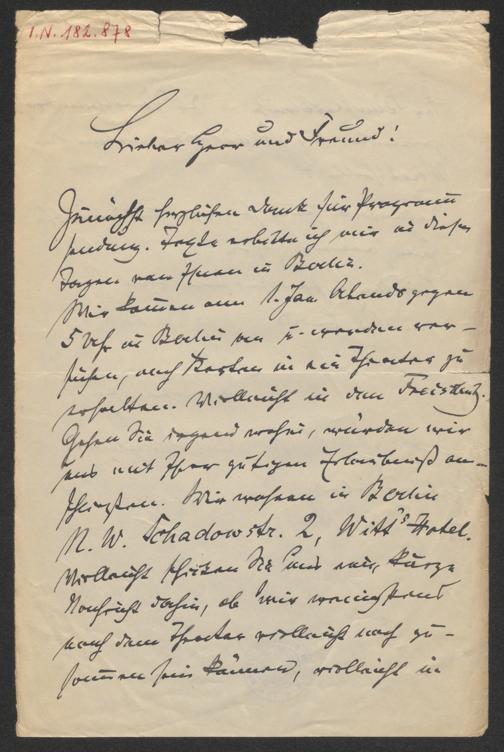 I.N. 182.878
Lieber Herr und Freund!
Zunächst herzlichen Dank für Programm
sendung. Jetzt erbitte ich mir in diesen
Tagen von Ihnen in Berlin.
Wir kommen am 1. Jan. Abends gegen
5 Uhr in Berlin an u. werden ver-
suchen, noch Karten in ein Theater zu
erhalten. Vielleicht in den
Gehen Sie irgend wohin, würden wir
uns mit Ihrer gütigen Erlaubniß an-
schließen. Wir wohnen in Berlin
N. W. Schadowstr. 2, Witt's Hotel.
Vielleicht schicken Sie uns eine kurze
Nachricht dahin, ob wir wenigstens
nach dem Theater vielleicht noch zu-
sammen sein können, vielleicht in